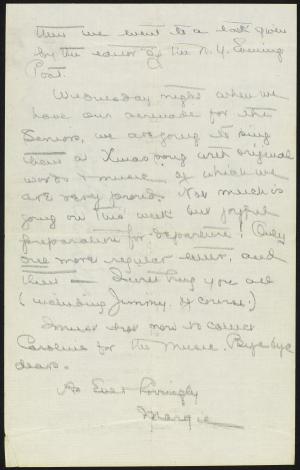 then we went to a given
by the editor of the N.Y. Evening
Post.
Wednesday night when we
have our serenade for the
Seniors, we are going to sing
them a Xmas song with original
words & music of which we
are very proud. Not much is
going on this week but joyful
preparation for departure! Only
one more regular letter, and
then — I must hug you all
(including Jimmy, of course.)
I must trot now to collect
Caroline for the music. Bye-bye
dears.
As Ever Lovingly
Margie